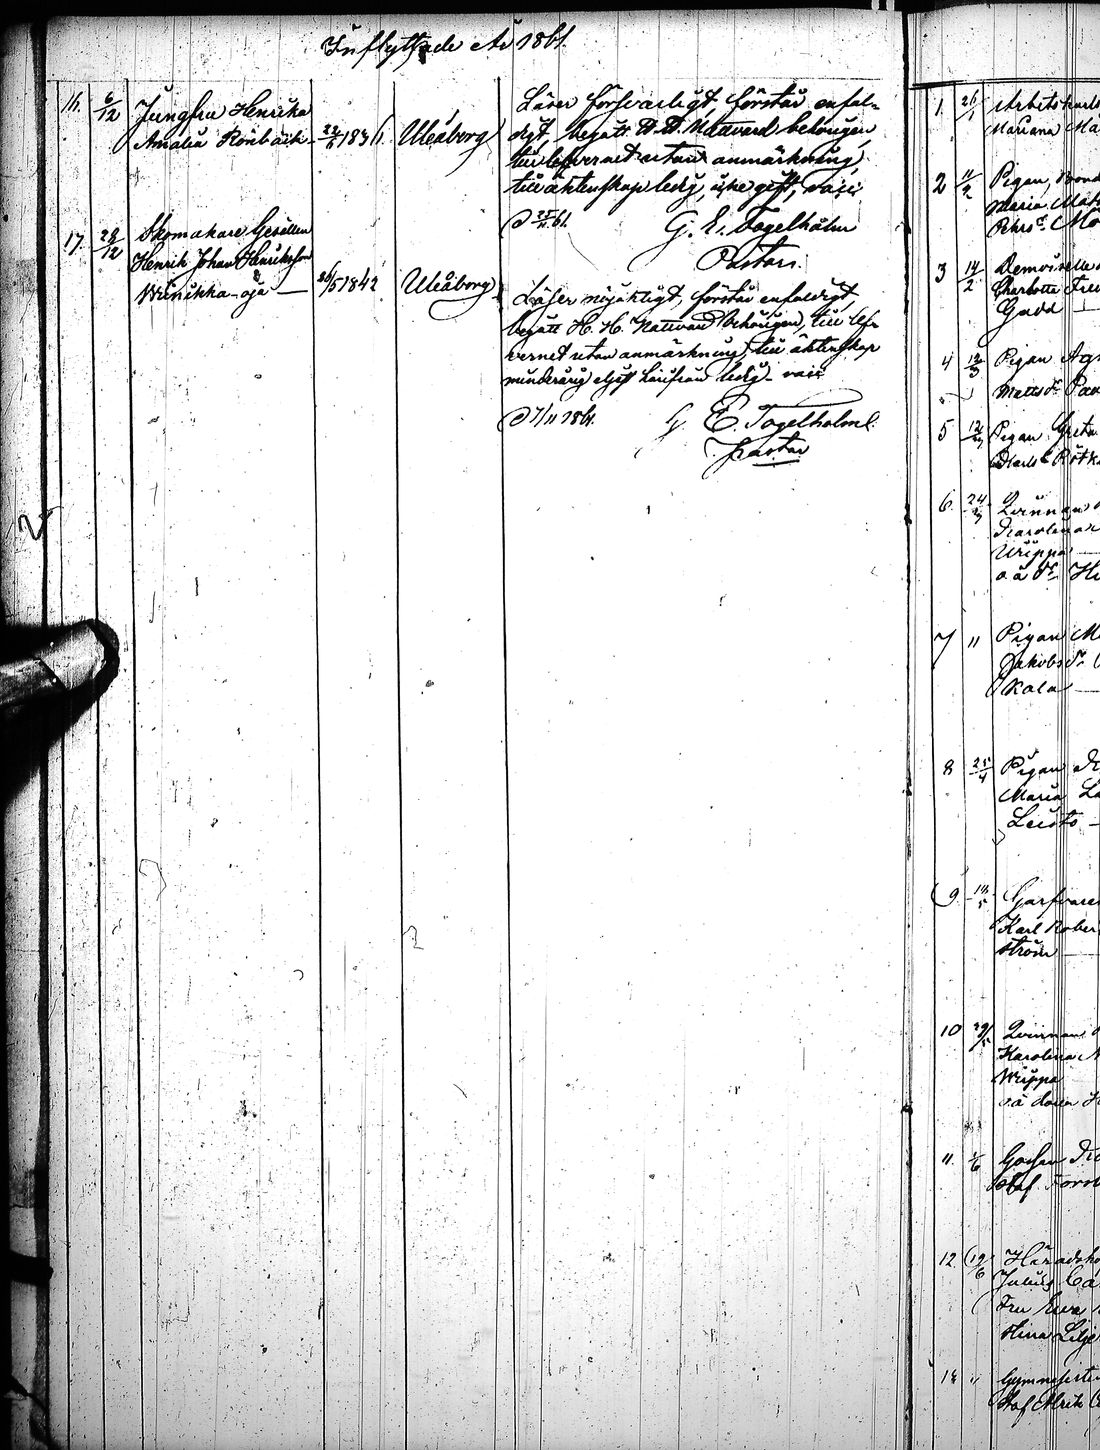 Inflyttade År 1861.
16. 6/12 Jungfru Henrika
Amalia Rönbäck 22/6 1831. Uleåborg
Läser försvarligt förstår enfal-
digt, begått H. H. Nattvard behörigen,
till lefvernet utan anmärkning,
till äktenskap ledig, icke gift, vacc:
D 25/11 61. G. E. Fogelholm
Pastor.
17. 28/12 Skomakare Gesällen
Henrik Johan Henriksson
Wiinikka-oja 26/5 1842 Uleåborg
Läser nöjaktigt, förstår enfaldigt,
begått H. H. Nattvard behörigen, till lef-
vernet utan anmärkning, till äktenskap
minderårig eljest härifrån ledig. vacc
D 7/11 1861. G. E. Fogelholm
Pastor
2
1. 26/1 Arbetskarls
Mariana Ma
2 11/2 Pigan, Bond
Maria Mats
Ehrs d. Mo
3 14/2 Demoiselle
Charlotta Fre
Gadd
4 12/3 Pigan Ag
Matts dr Pa
5 12/3 Pigan Greta
Karls d Rötk
6. 24/3 Qvinnan
Karolina
Wrippa
o ä dr He
7 " Pigan Ma
Jakobs dr
Kala
8 25/4 Pigan
Maria La
Leisto
9. 14/5 Garfvare
Karl Rober
ström
10 29/5 Qvinnan
Karolina
Wrippa
o.ä doter H
11. 1/6 Gossen
Olof
12 12/6 Häradshö
Julius Ca
Fru Eva
Stina Lilje
13 " Gymnasisten